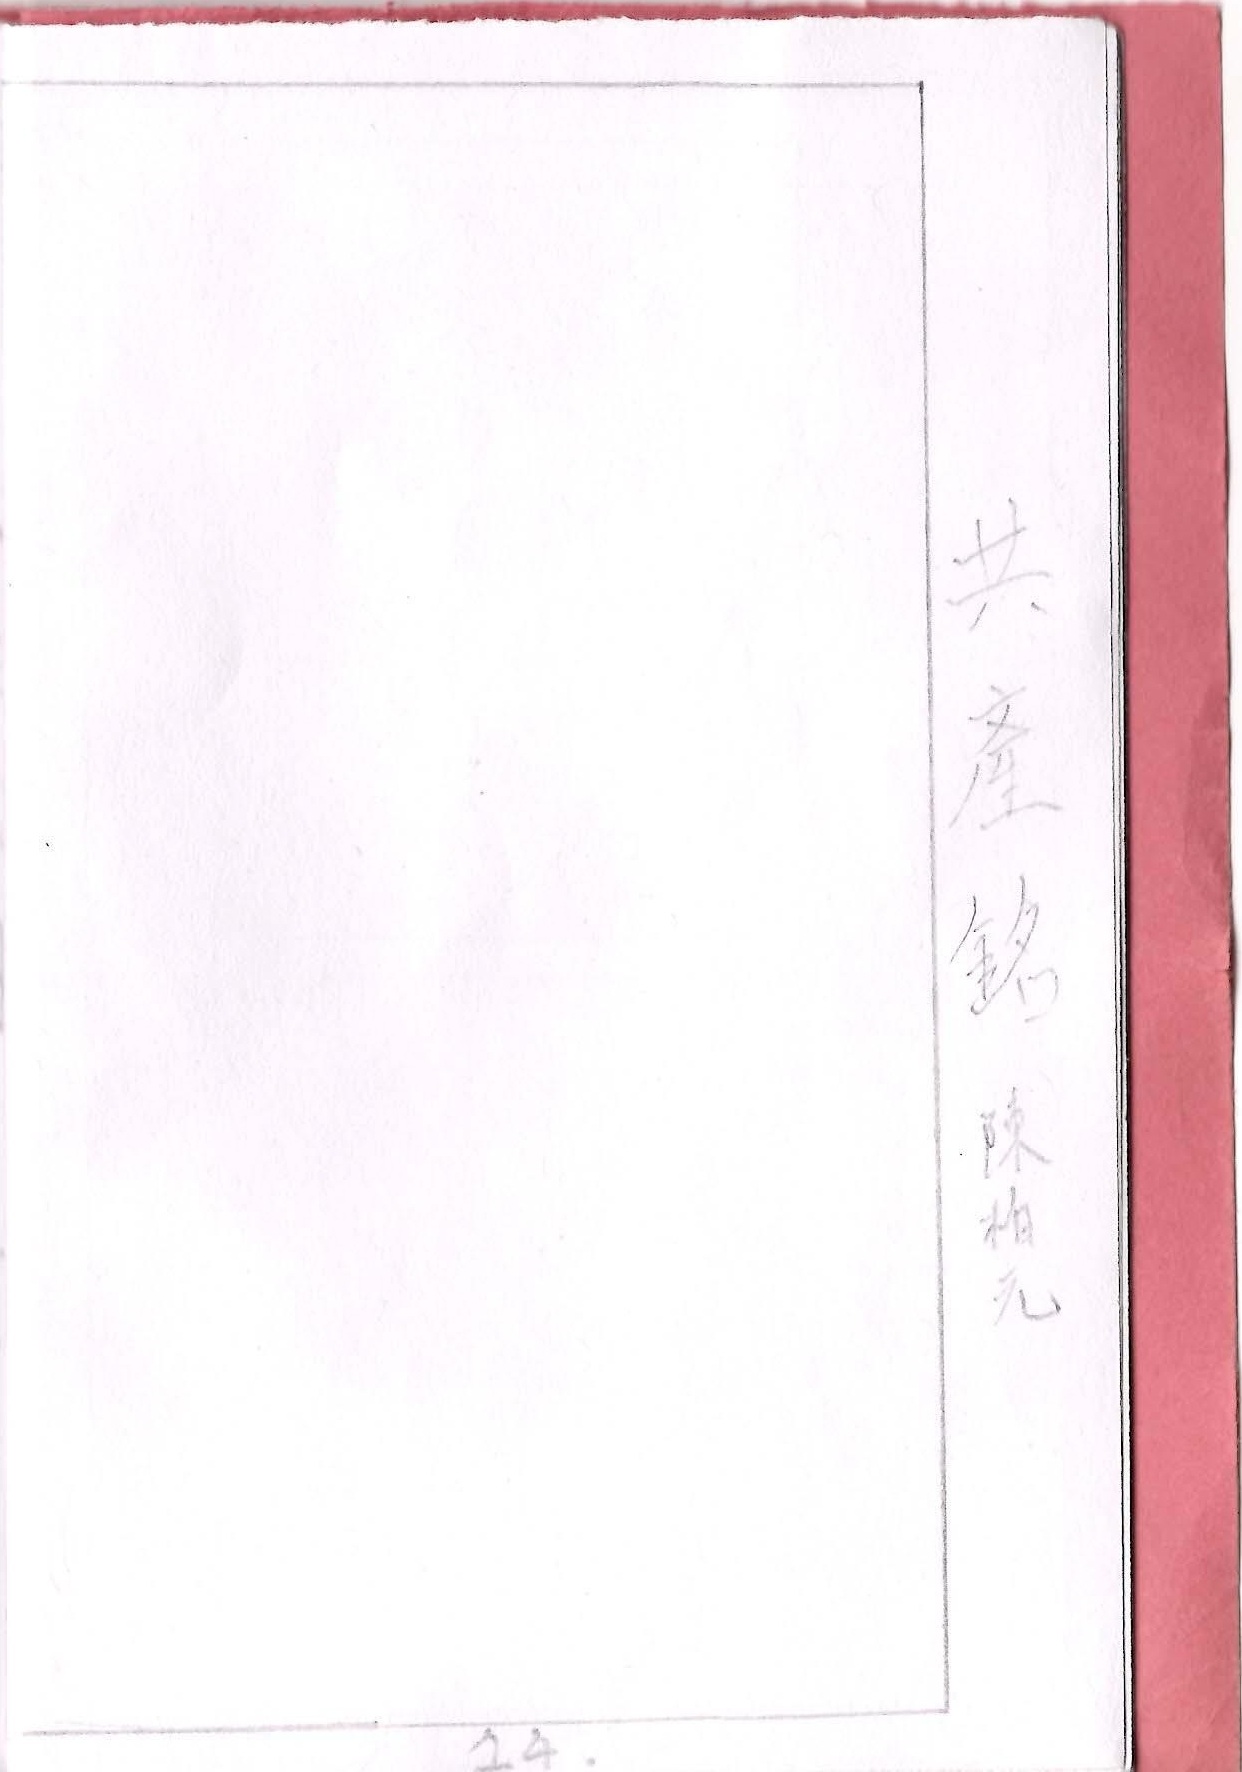 共產銘 陳柏元
14.